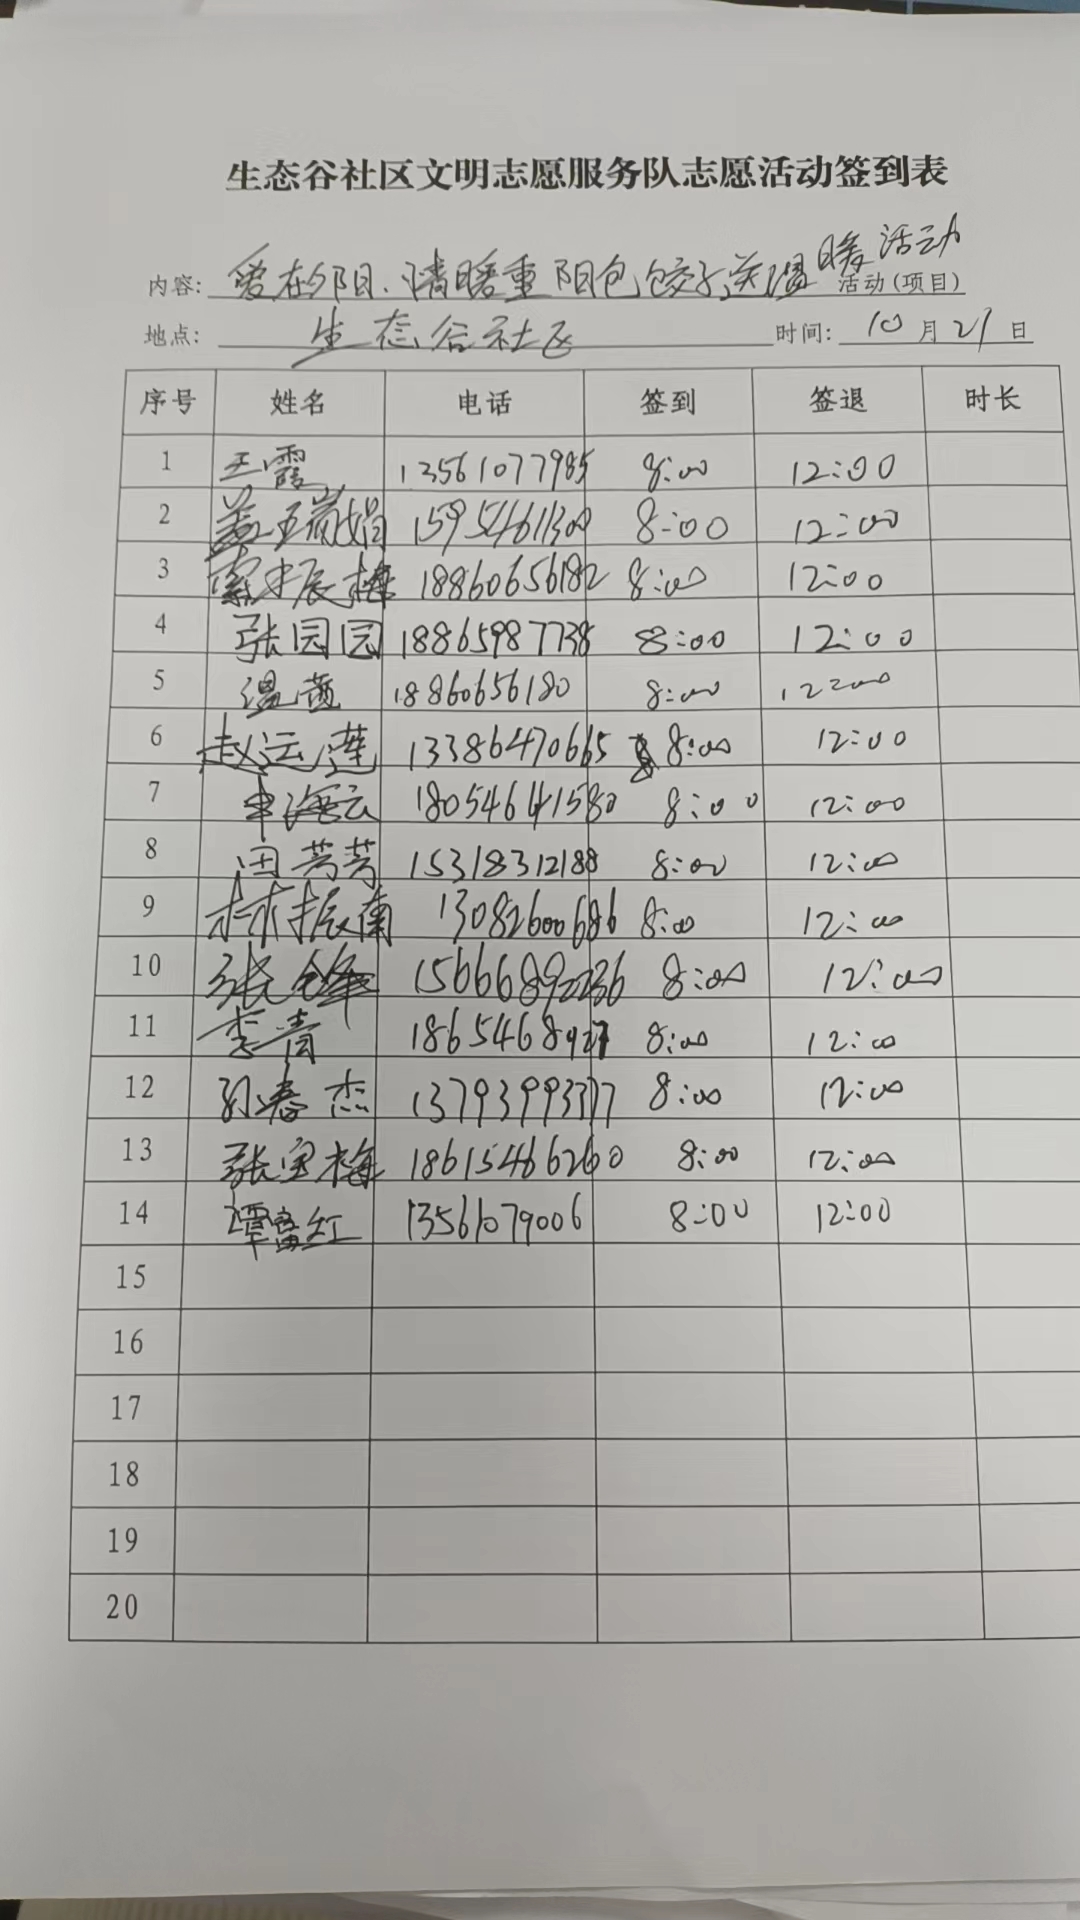 生态谷社区文明志愿服务队志愿活动签到表
内容: 爱在夕阳、情暖重阳包饺子送温暖活动 活动(项目)
地点: 生态谷社区 时间: 10月21日
序号 姓名 电话 签到 签退 时长
1 王霞 13561077985 8:00 12:00
2 15954611300 8:00 12:00
3 18860656182 8:00 12:00
4 张园园 18865987738 8:00 12:00
5 温茜 18860656180 8:00 12:00
6 赵运莲 13386470665 8:00 12:00
7 申海云 18054641580 8:00 12:00
8 田芳芳 15318312188 8:00 12:00
9 林振南 13082600686 8:00 12:00
10 张锋 15666892236 8:00 12:00
11 李青 8:00 12:00
12 孙春杰 13793993377 8:00 12:00
13 张宝梅 18615466260 8:00 12:00
14 谭富红 13561079006 8:00 12:00
15
16
17
18
19
20